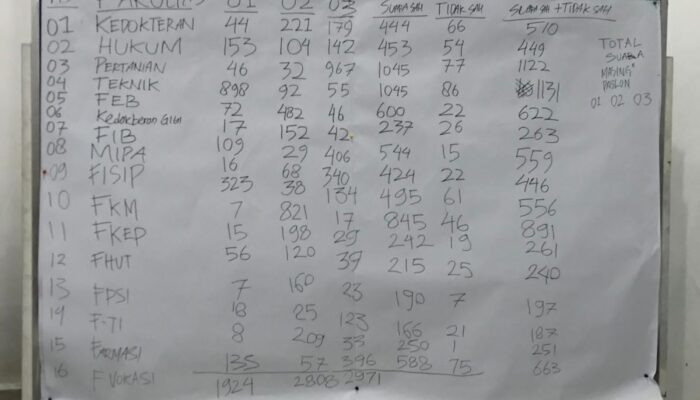 01 02 03 SUARA SAH TIDAK SAH SUARA SAH + TIDAK SAH
01 KEDOKTERAN 44 221 179 444 66 510
02 HUKUM 153 104 142 453 54 449
03 PERTANIAN 46 32 967 1045 77 1122
04 TEKNIK 898 92 55 1045 86 1131
05 FEB 72 482 46 600 22 622
06 Kedokteran Gigi 17 152 42 237 26 263
07 FIB 109 29 406 544 15 559
08 MIPA 16 68 340 424 22 446
09 FISIP 323 38 134 495 61 556
10 FKM 7 821 17 845 46 891
11 FKEP 15 198 29 242 19 261
12 FHUT 56 120 39 215 25 240
13 FPSI 7 160 23 190 7 197
14 F-TI 18 25 123 166 21 187
15 FARMASI 8 209 33 250 1 251
16 F VOKASI 135 57 396 588 75 663
1924 2808 2971
TOTAL
SUARA
MASING"
PASLON
01 02 03